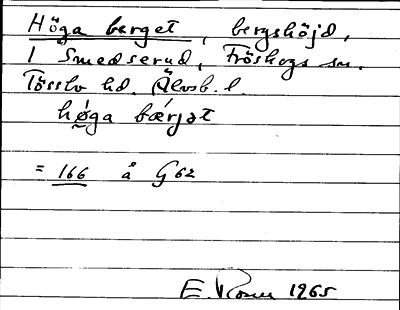 Höga berget, bergshöjd,
I Smedserud, Fröskogs sn.
Tössbo hd. Älvsb. l.
hǿga bǽrjət
= 166 å G62
E. Rosen 1965